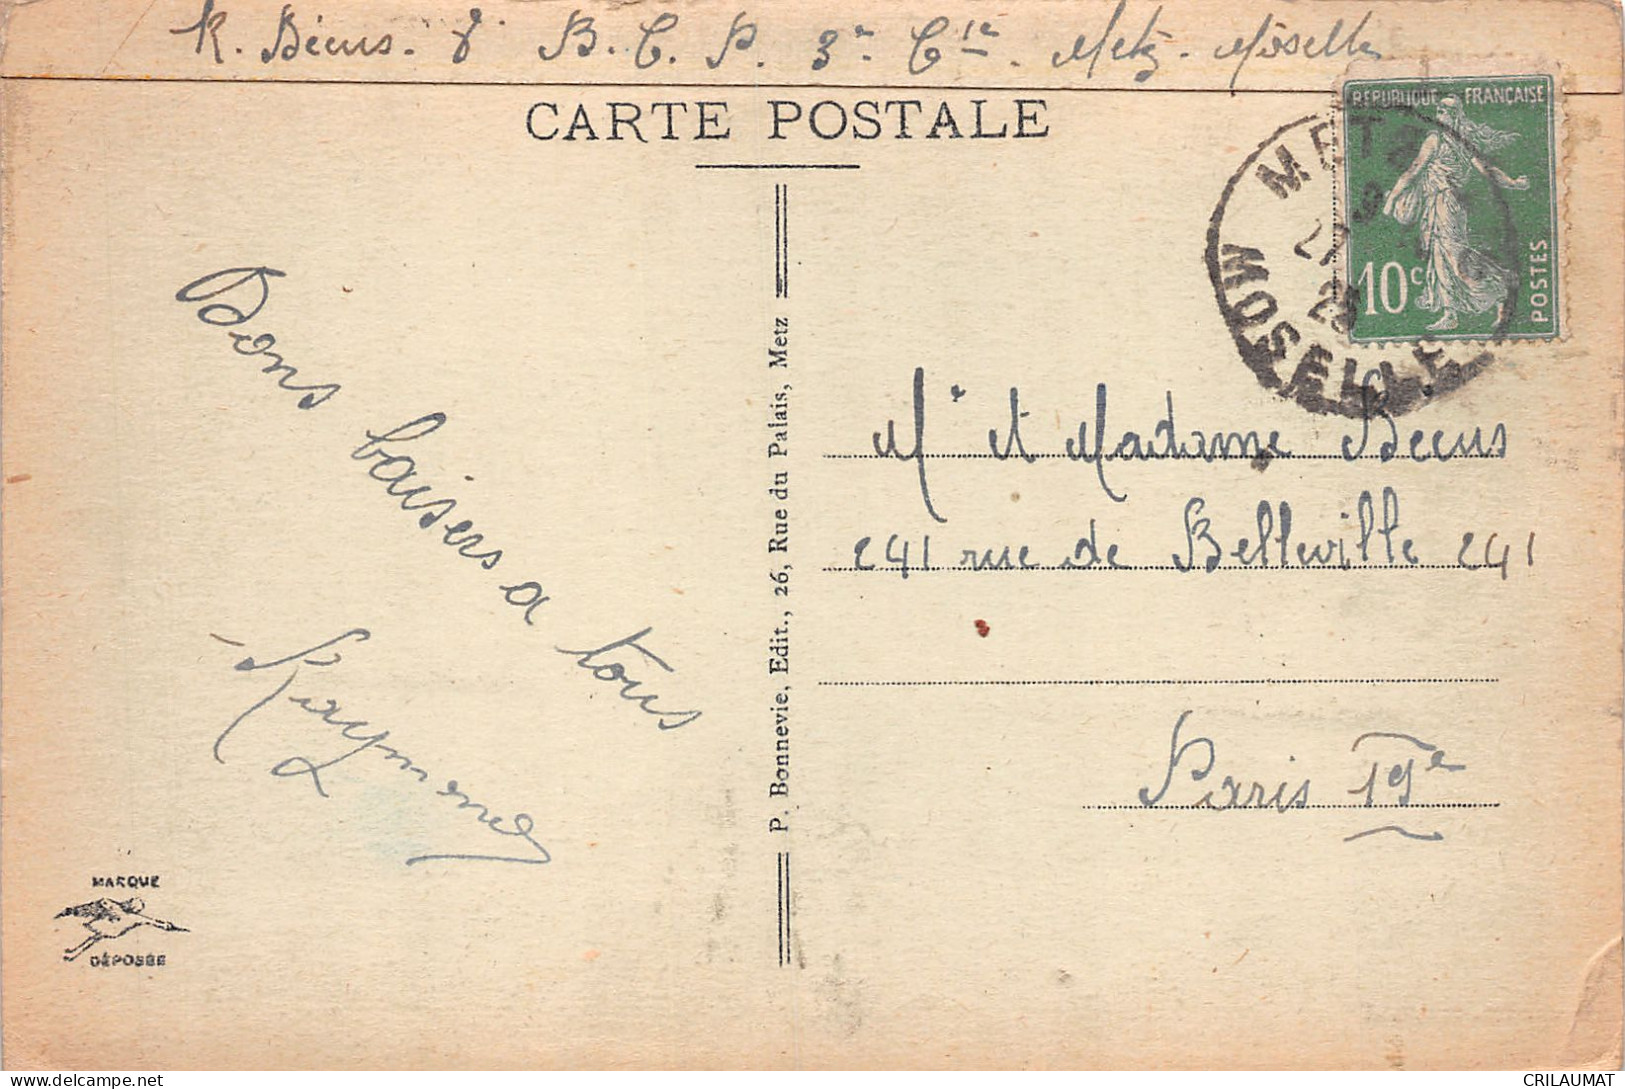 R. Bécus. 8e B. C. P. 3e Cie. Metz. Moselle
CARTE POSTALE
RÉPUBLIQUE FRANÇAISE
10c
POSTES
METZ
27
MOSELLE
Bons baisers a tous
Raymond
P. Bonnevie, Edit., 26, Rue du Palais, Metz
Mr et Madame Becus
241 rue de Belleville 241
Paris 19e
MARQUE
DÉPOSÉE
delcampe.net
CRILAUMAT